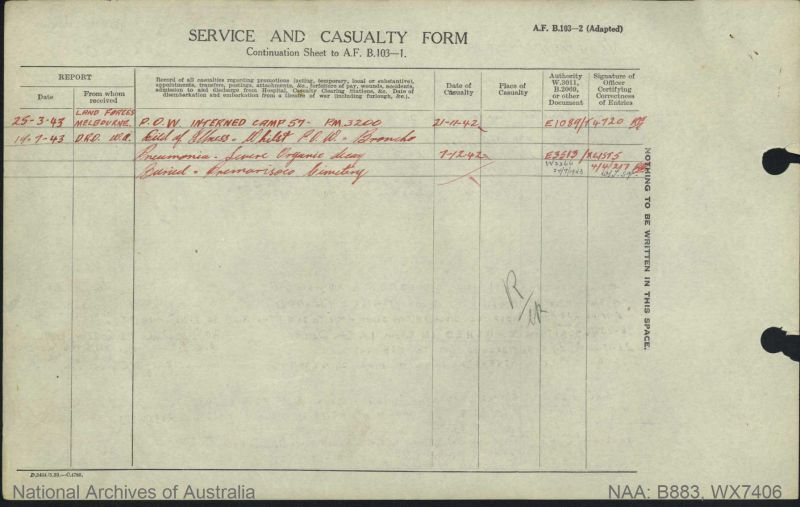 A.F. B.103—2 (Adapted)
SERVICE AND CASUALTY FORM
Continuation Sheet to A.F. B.103—1.
REPORT
Date
From whom received
Record of all casualties regarding promotions (acting, temporary, local or substantive),
appointments, transfers, postings, attachments, &c., forfeiture of pay, wounds, accidents,
admission to and discharge from Hospital, Casualty Clearing Stations, &c. Date of
disembarkation and embarkation from a theatre of war (including furlough, &c.).
Date of Casualty
Place of Casualty
Authority W.3011, B.2069, or other Document
Signature of Officer Certifying Correctness of Entries
25-3-43 LAND FORCES MELBOURNE P.O.W INTERNED CAMP 57- PM 3200 21-11-42 E1089/ T4720
19-7-43 D.R.O. W.A. Died of Illness - Whilst P.O.W - Broncho
Pneumonia - Severe Organic decay 7-12-42 E3513
Buried - Cemetery
NOTHING TO BE WRITTEN IN THIS SPACE.
National Archives of Australia
NAA: B883, WX7406